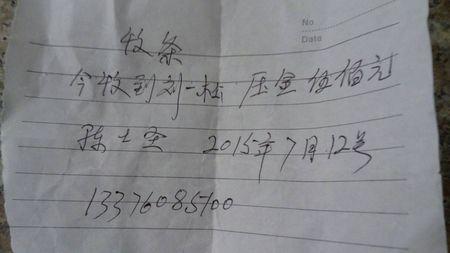 No
Date
收条
今收到刘一松 压金伍佰元
陈士全 2015年7月12号
13376085100